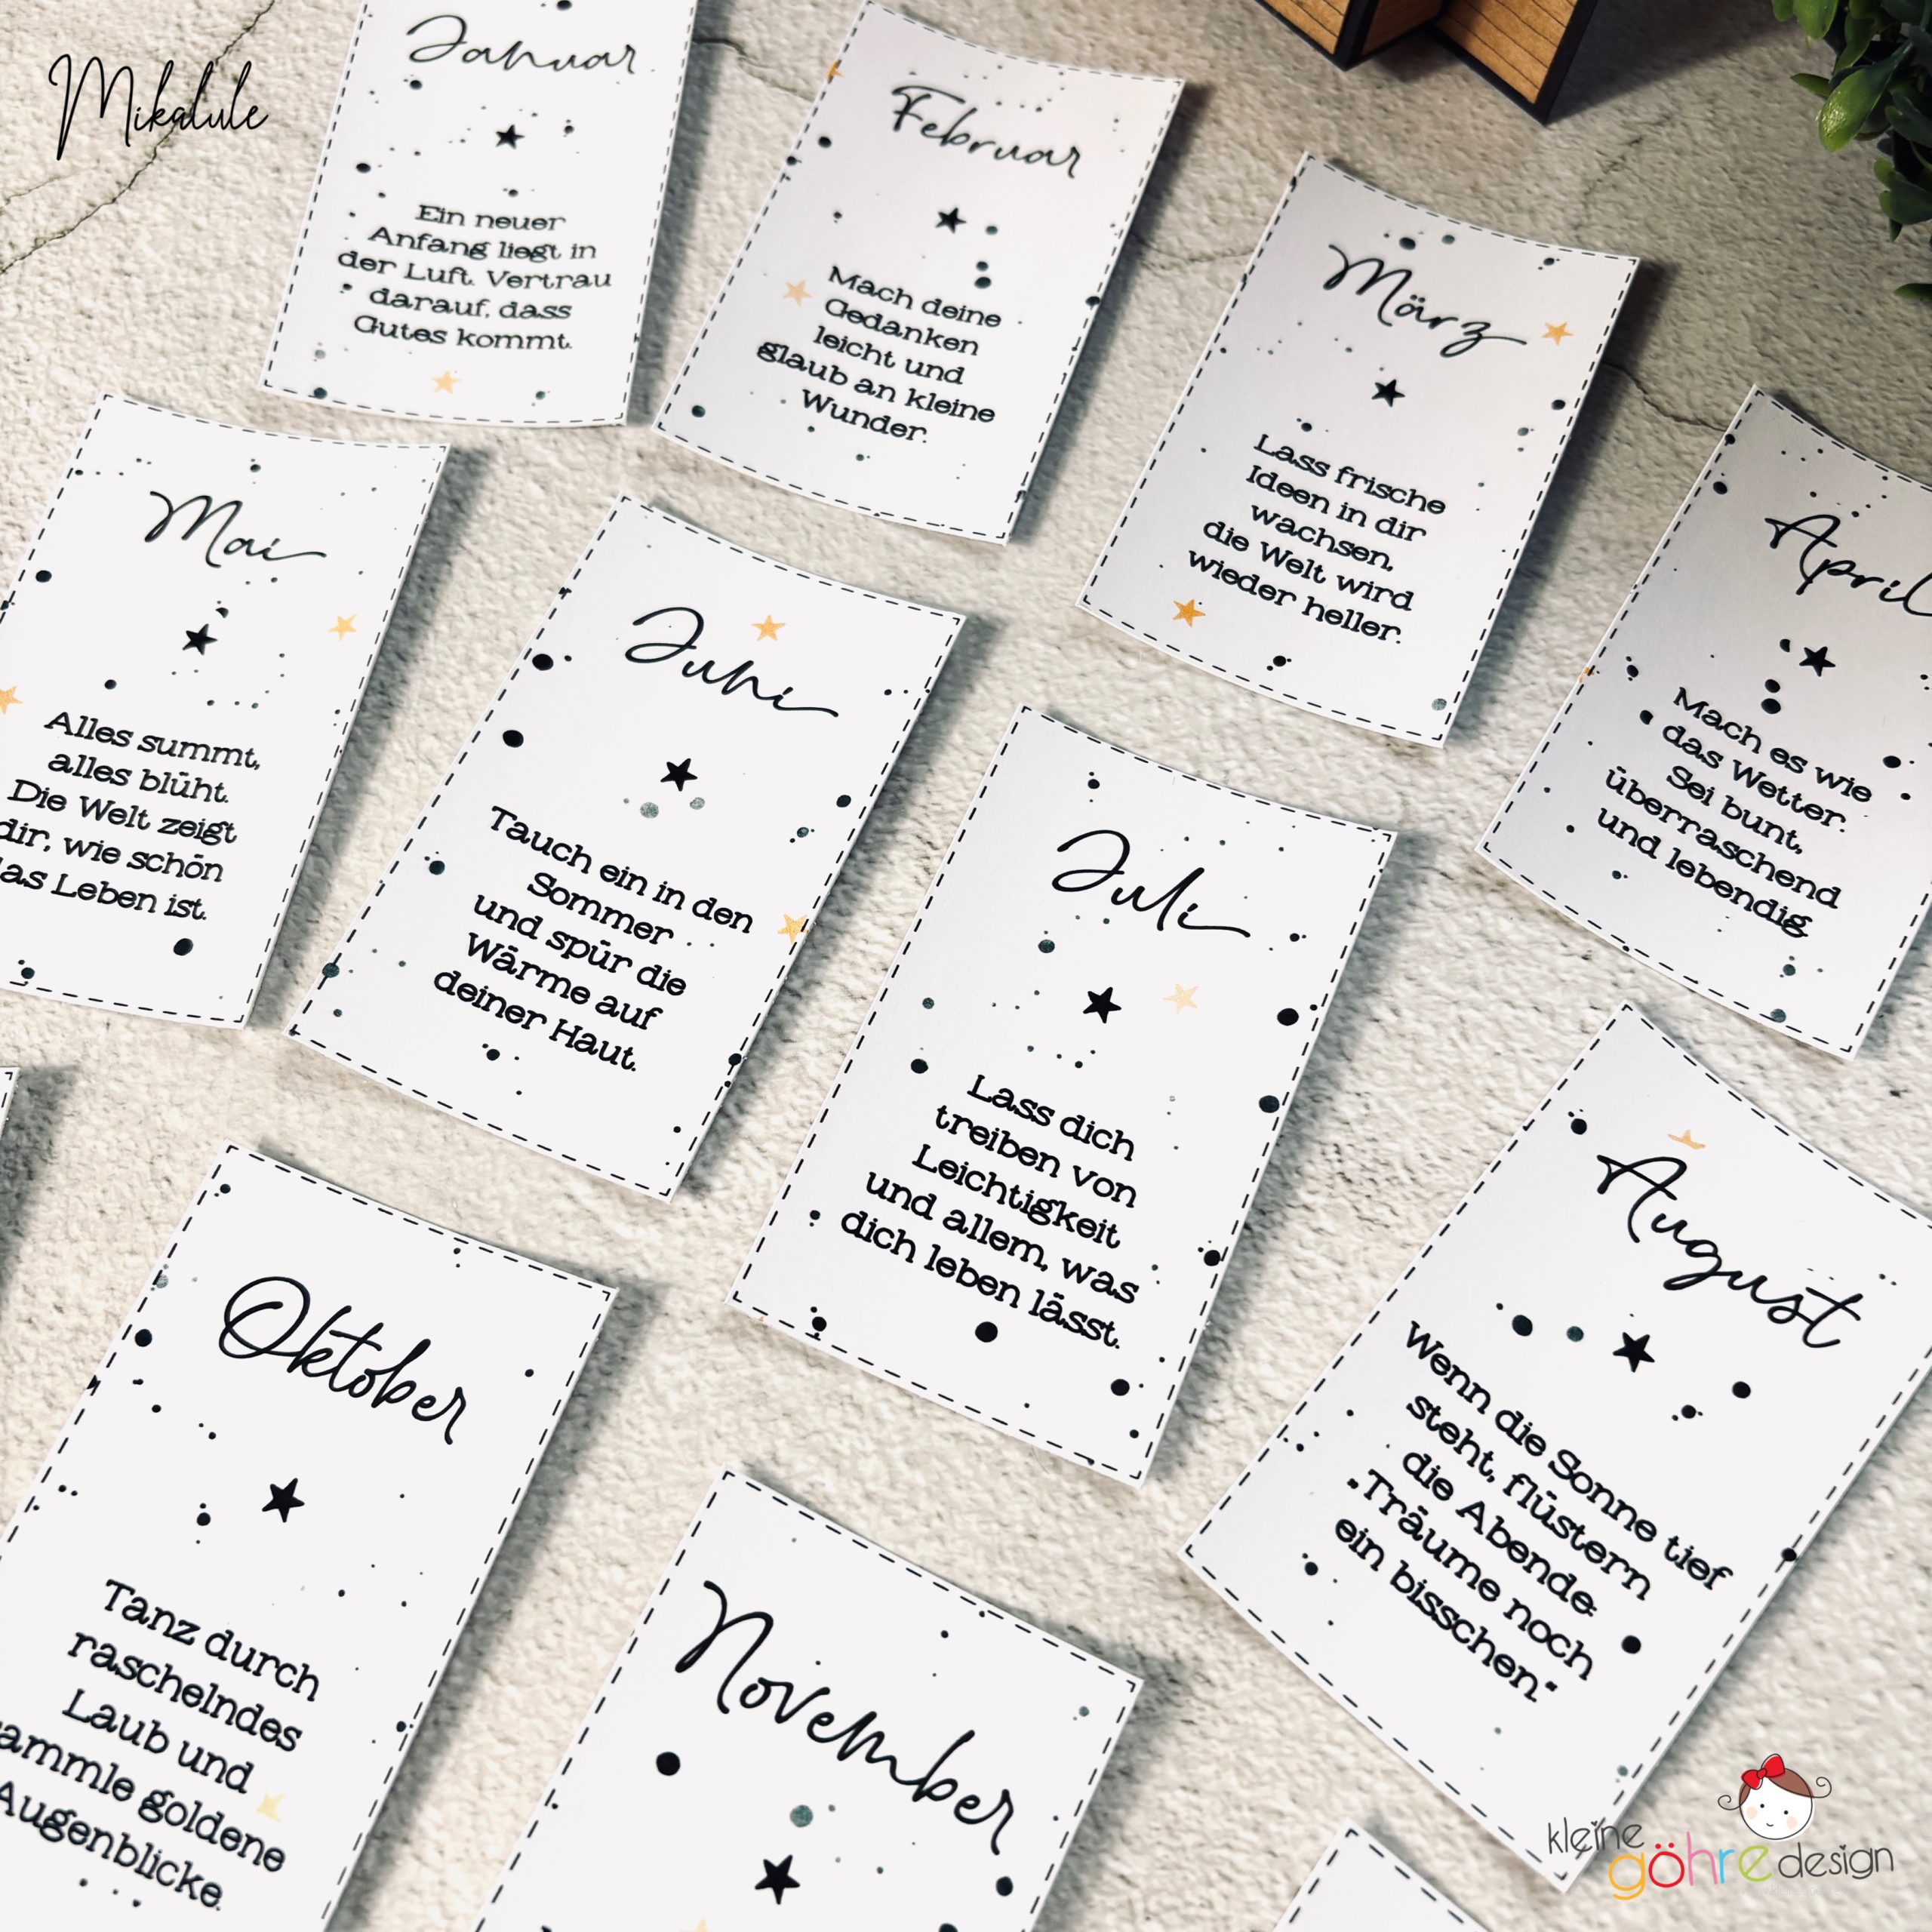 Mikalule
Januar
Ein neuer
Anfang liegt in
der Luft. Vertrau
darauf, dass
Gutes kommt.
Februar
Mach deine
Gedanken
leicht und
glaub an kleine
Wunder.
März
Lass frische
Ideen in dir
wachsen,
die Welt wird
wieder heller.
April
Mach es wie
das Wetter:
Sei bunt,
überraschend
und lebendig.
Mai
Alles summt,
alles blüht.
Die Welt zeigt
dir, wie schön
as Leben ist.
Juni
Tauch ein in den
Sommer
und spür die
Wärme auf
deiner Haut.
Juli
Lass dich
treiben von
Leichtigkeit
und allem, was
dich leben lässt.
August
Wenn die Sonne tief
steht, flüstern
die Abende:
„Träume noch
ein bisschen.“
Oktober
Tanz durch
raschelndes
Laub und
ammle goldene
Augenblicke.
November
kleine
göhre design